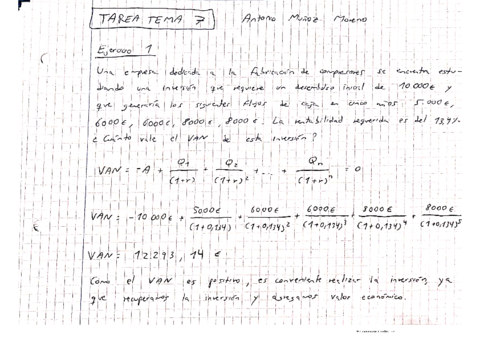 TAREA TEMA 7 Antonio Muñoz Moreno
Ejercicio 1
Una empresa dedicada a la fabricación de compresores se encuentra estu-
diando una inversión que requiere un desembolso inicial de 10 000 € y
que generaría los siguientes flujos de caja en cinco años: 5.000€,
6000€, 6000€, 8000€, 8000€. La rentabilidad requerida es del 13,4%
¿Cuánto vale el VAN de esta inversión?
VAN = -A + Q1/(1+r) + Q2/(1+r)^2 + ... + Qn/(1+r)^n = 0
VAN = -10 000€ + 5000€/(1+0,134) + 6000€/(1+0,134)^2 + 6000€/(1+0,134)^3 + 8000€/(1+0,134)^4 + 8000€/(1+0,134)^5
VAN = 12.293, 14 €
Como el VAN es positivo, es conveniente realizar la inversión, ya
que recuperamos la inversión y agregamos valor económico.